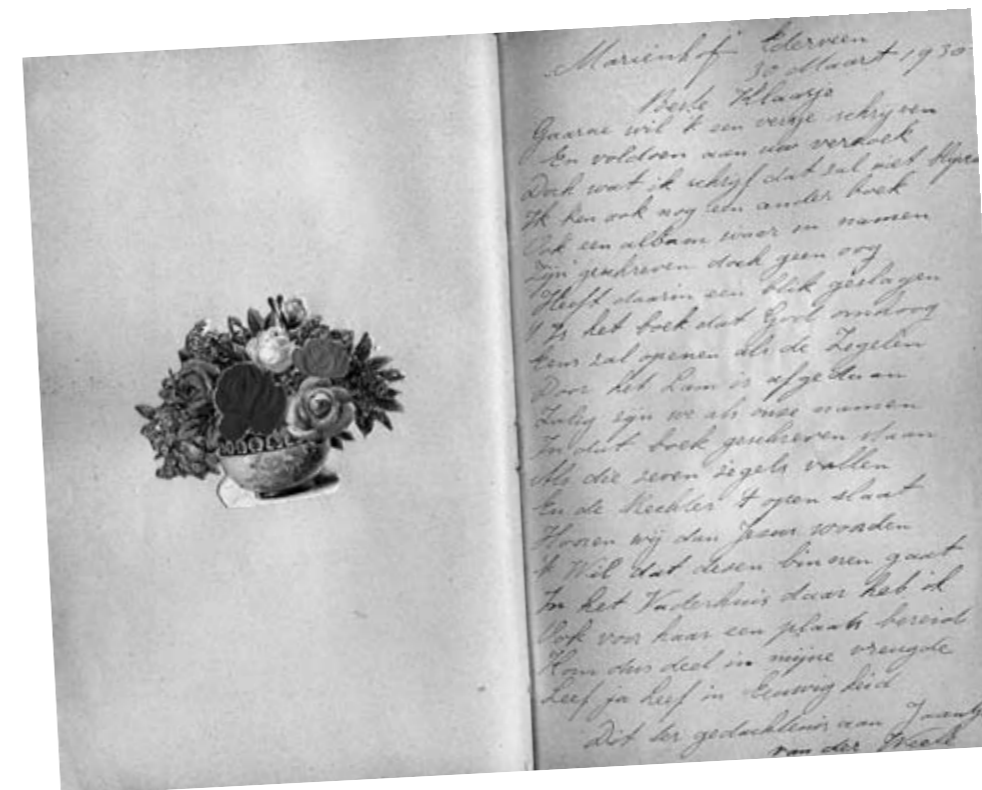 Mariënhof Ederveen
30 Maart 1930
Beste Klaasje
Gaarne wil k een versje schrijven
En voldoen aan uw verzoek
Doch wat ik schrijf dat zal niet blijven
Ik ken ook nog een ander boek
Ook een album waar in namen
Zijn geschreven doch geen oog
Heeft daarin een blik geslagen
't Is het boek dat God omhoog
Eens zal openen als de Zegelen
Door het Lam is afgedaan
Zalig zijn we als onze namen
In dat boek geschreven staan
Als die zeven zegels vallen
En de Rechter 't open slaat
Hooren wij dan Jezus woorden
'k Wil dat dezen binnen gaat
In het Vaderhuis daar heb ik
Ook voor haar een plaats bereid
Kom dus deel in mijne vreugde
Leef ja leef in Eeuwigheid
Dit ter gedachtenis aan
van der